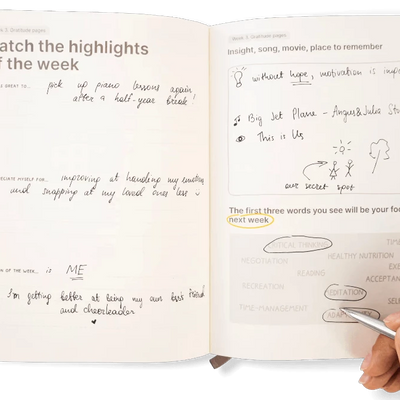 3: Gratitude pages
atch the highlights
f the week
S GREAT TO... pick up piano lessons again
after a half-year break!
ECIATE MYSELF FOR... improving at handling my emotions
and snapping at my loved ones less
ON OF THE WEEK... is ME
I'm getting better at being my own best friend
and cheerleader
Week 3: Gratitude pages
Insight, song, movie, place to remember
without hope, motivation is imp
Big Jet Plane - Angus & Julia St
This is Us
our secret spot
The first three words you see will be your fo
next week
CRITICAL THINKING
TIM
NEGOTIATION
HEALTHY NUTRITION
READING
EXE
ACCEPTAN
RECREATION
MEDITATION
SEL
TIME-MANAGEMENT